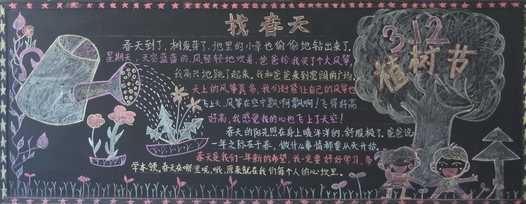 找春天
3.12
植树节
春天到了，树发芽了，地里的小草也偷偷地钻出来了，
星期天，天空蓝蓝的，风轻轻地吹着，爸爸给我买了个大风筝，
我高兴地跳了起来，我和爸爸来到宽阔的广场，
天上的风筝真多，我们赶紧让自己的风筝也
飞上天，风筝在空中飘啊飘啊！飞得好高
好高，我感觉我的心也飞上了天空！
春天的阳光照在身上暖洋洋的，舒服极了，爸爸说
一年之际在于春，做什么事情都要从天开始，
春天是我们一年新的希望，我一定要好好学习，多
学本领，春天在哪里呢，哦，原来就在我们每个人的心坎里。